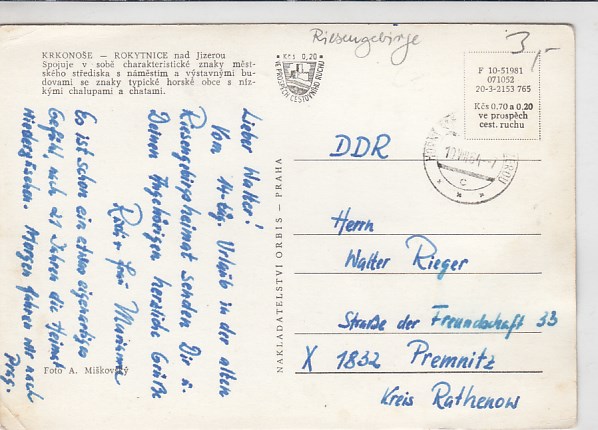 Riesengebirge
3,-
KRKONOŠE – ROKYTNICE nad Jizerou
Spojuje v sobě charakteristické znaky měst-
ského střediska s náměstím a výstavnými bu-
dovami se znaky typické horské obce s níz-
kými chalupami a chatami.
Kčs 0,20
VE PROSPĚCH CESTOVNÍHO RUCHU
F 10-51981
071052
20-3-2153 765
Kčs 0.70 a 0,20
ve prospěch
cest. ruchu
Lieber Walter!
Vom 14-tåg. Urlaub in der alten
Riesengbirgsheimat senden Dir u.
Deinen Angehörigen herzliche Grüße
Rudi u. Frau Marianne
Es ist schon ein etwas eigenartiges
Gefühl, nach 21 Jahren die Heimat
wiederzusehen. Morgen fahren wir nach
Prag.
Foto A. Miškovský
NAKLADATELSTVÍ ORBIS – PRAHA
DDR
Herrn
Walter Rieger
Straße der Freundschaft 33
X 1832 Premnitz
Kreis Rathenow